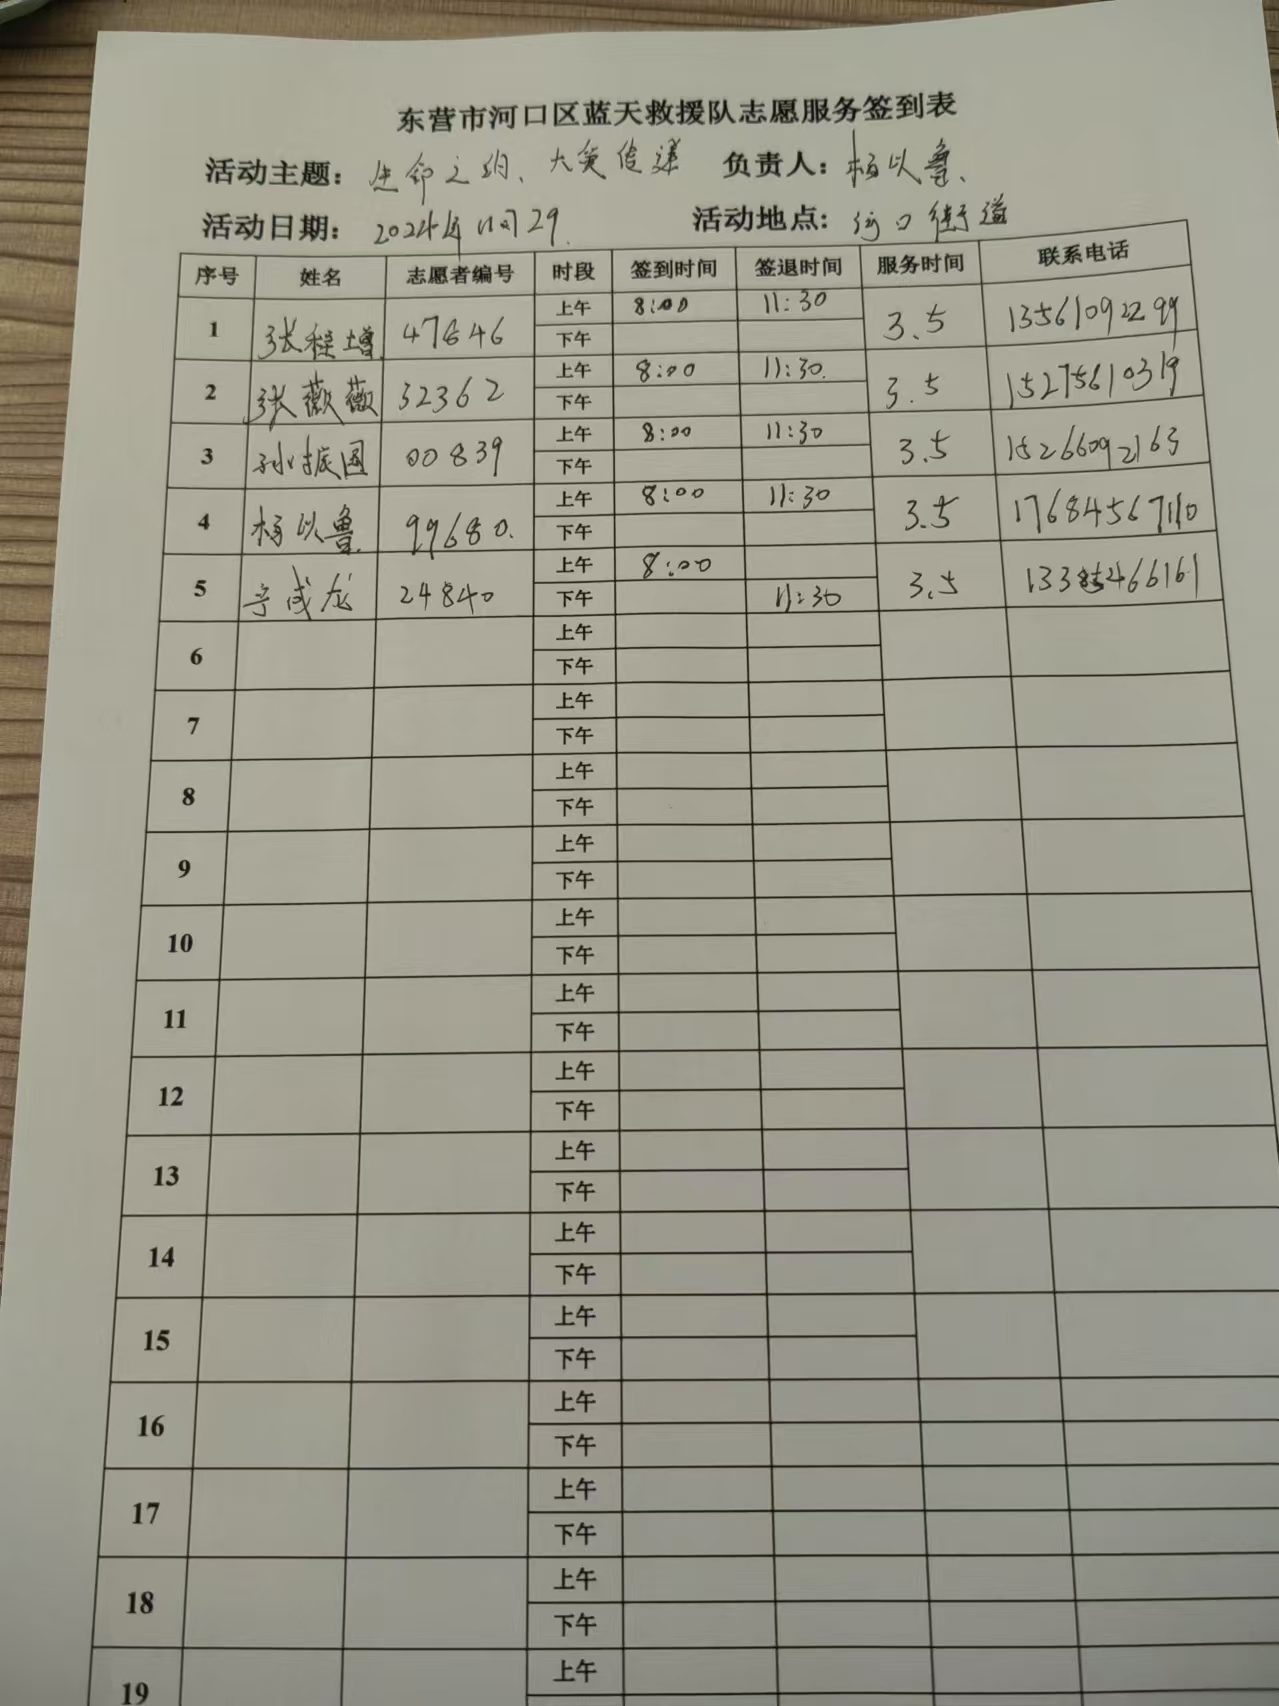 东营市河口区蓝天救援队志愿服务签到表
活动主题：生命之约、大爱传递 负责人：杨以鲁
活动日期：2024年11月29 活动地点：河口街道
序号 姓名 志愿者编号 时段 签到时间 签退时间 服务时间 联系电话
1 张程增 47646 上午 8:00 11:30 3.5 13561092299
下午
2 张薇薇 32362 上午 8:00 11:30 3.5 15275610319
下午
3 孙振国 00839 上午 8:00 11:30 3.5 15266092163
下午
4 杨以鲁 99680 上午 8:00 11:30 3.5 17684567110
下午
5 成龙 24840 上午 8:00 3.5
下午 11:30
6 上午
下午
7 上午
下午
8 上午
下午
9 上午
下午
10 上午
下午
11 上午
下午
12 上午
下午
13 上午
下午
14 上午
下午
15 上午
下午
16 上午
下午
17 上午
下午
18 上午
下午
19 上午